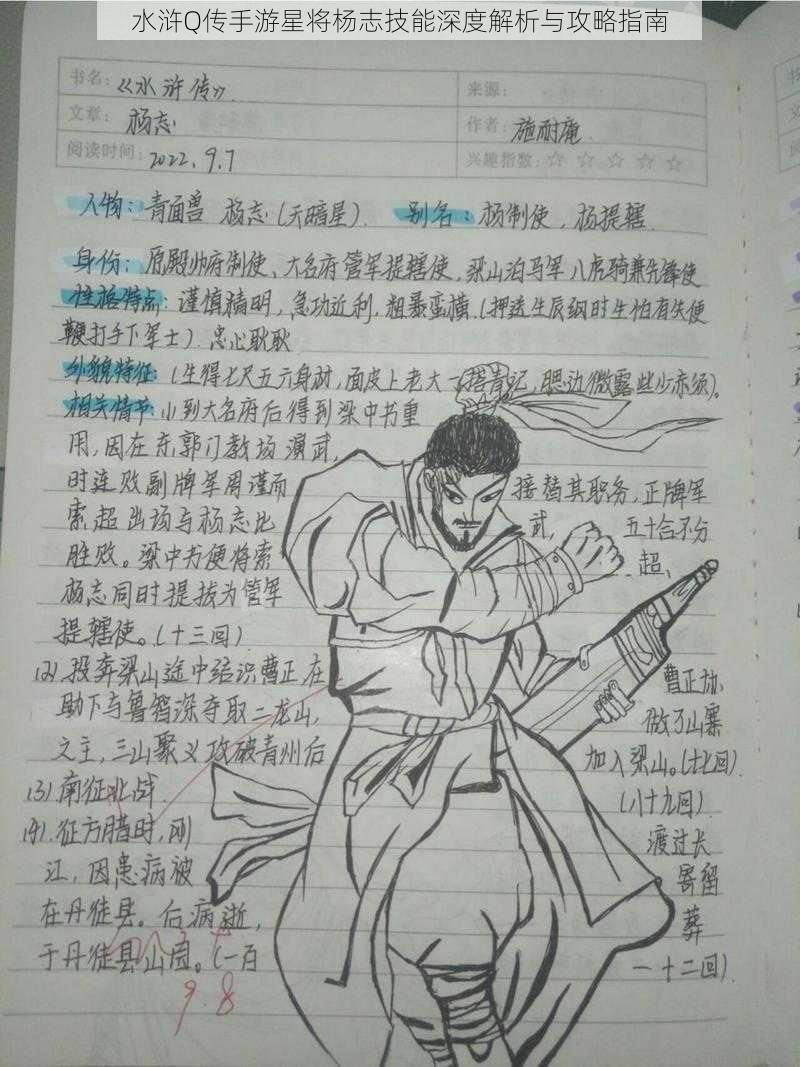 水浒Q传手游星将杨志技能深度解析与攻略指南
书名：《水浒传》. 来源：
文章： 杨志 作者：施耐庵
阅读时间：2022.9.7 兴趣指数：☆ ☆ ☆ ☆ ☆
人物：青面兽 杨志（天暗星）. 别名：杨制使，杨提辖
身份：原殿帅府制使、大名府管军提辖使，梁山泊马军八虎骑兼先锋使
性格特点：谨慎精明，急功近利，粗暴蛮横.（押送生辰纲时生怕有失便
鞭打手下军士）.忠心耿耿
外貌特征：（生得七尺五六身材，面皮上老大一搭青记，腮边微露些少赤须）。
相关情节：(1)到大名府后得到梁中书重
用，因在东郭门教场演武，
时连败副牌军周谨而 接替其职务，正牌军
索超出场与杨志比 武， 五十合不分
胜败。梁中书便将索 超、
杨志同时提拔为管军
提辖使。（十三回）
(2).投奔梁山途中结识曹正，在 曹正协
助下与鲁智深夺取二龙山， 做了山寨
之主，三山聚义攻破青州后 加入梁山。（十七回）
(3).南征北战 （八十九回）
(4).征方腊时，刚 渡过长
江，因患病被 寄留
在丹徒县。后病逝， 葬
于丹徒县山园。（一百 一十二回）
9.8